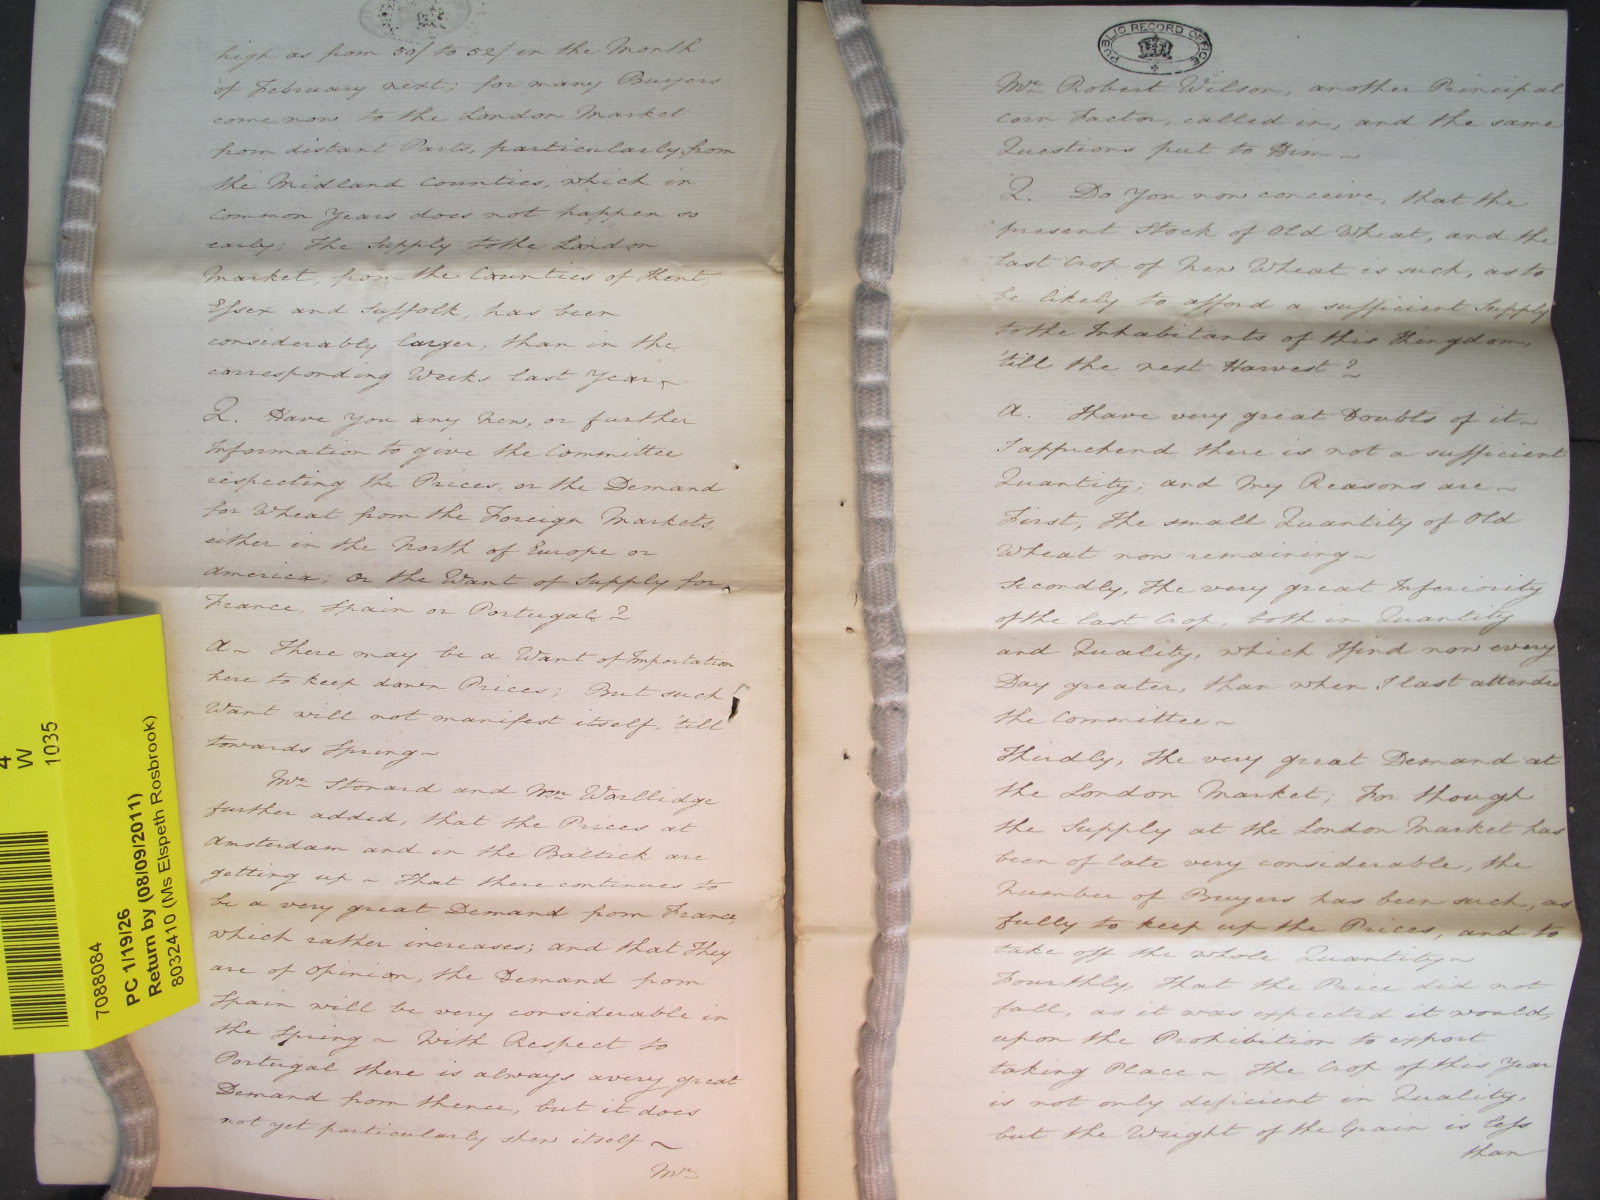 high as from 50/ to 52/ in the Month
of February next; for many Buyers
come now to the London Market
from distant Parts, particularly from
the Midland Counties, which in
Common Years does not happen so
early; The Supply to the London
Market, from the Counties of Kent,
Essex and Suffolk, has been
considerably larger, than in the
corresponding Weeks last Year ~
Q. Have You any New, or further
Information to give the Committee
respecting the Prices or the Demand
for Wheat from the Foreign Markets,
either in the North of Europe or
America; or the Want of Supply for
France, Spain or Portugal?
A ~ There may be a Want of Importation
here to keep down Prices; But such
Want will not manifest itself, 'till
towards Spring ~
Mr. Stonard and Mr. Wartlidge
further added, that the Prices at
Amsterdam and in the Baltick are
getting up ~ That there continues to
be a very great Demand from France,
which rather increases; and that They
are of Opinion, the Demand from
Spain will be very considerable in
the Spring ~ With Respect to
Portugal there is always a very great
Demand from thence, but it does
not yet particularly shew itself ~
Mr.
PUBLIC RECORD OFFICE
Mr. Robert Wilson, another Principal
Corn Factor, called in, and the same
Questions put to Him ~
Q. Do You now conceive, that the
present Stock of Old Wheat, and the
last Crop of New Wheat is such, as to
be likely to afford a sufficient Supply
to the Inhabitants of this Kingdom,
'till the next Harvest?
A. I have very great Doubts of it ~
I apprehend there is not a sufficient
Quantity; and my Reasons are ~
First, The small Quantity of Old
Wheat now remaining ~
Secondly, The very great Inferiority
of the last Crop, both in Quantity
and Quality, which I find now every
Day greater, than when I last attended
the Committee ~
Thirdly, The very great Demand at
the London Market; For though
the Supply at the London Market has
been of late very considerable, the
Number of Buyers has been such, as
fully to keep up the Prices, and to
take off the whole Quantity ~
Fourthly, That the Price did not
fall, as it was expected it would,
upon the Prohibition to export
taking Place ~ The Crop of this Year
is not only deficient in Quality,
but the Weight of the Grain is less
than
4
W
1035
7088084
PC 1/19/26
Return by (08/09/2011)
8032410 (Ms Elspeth Rosbrook)